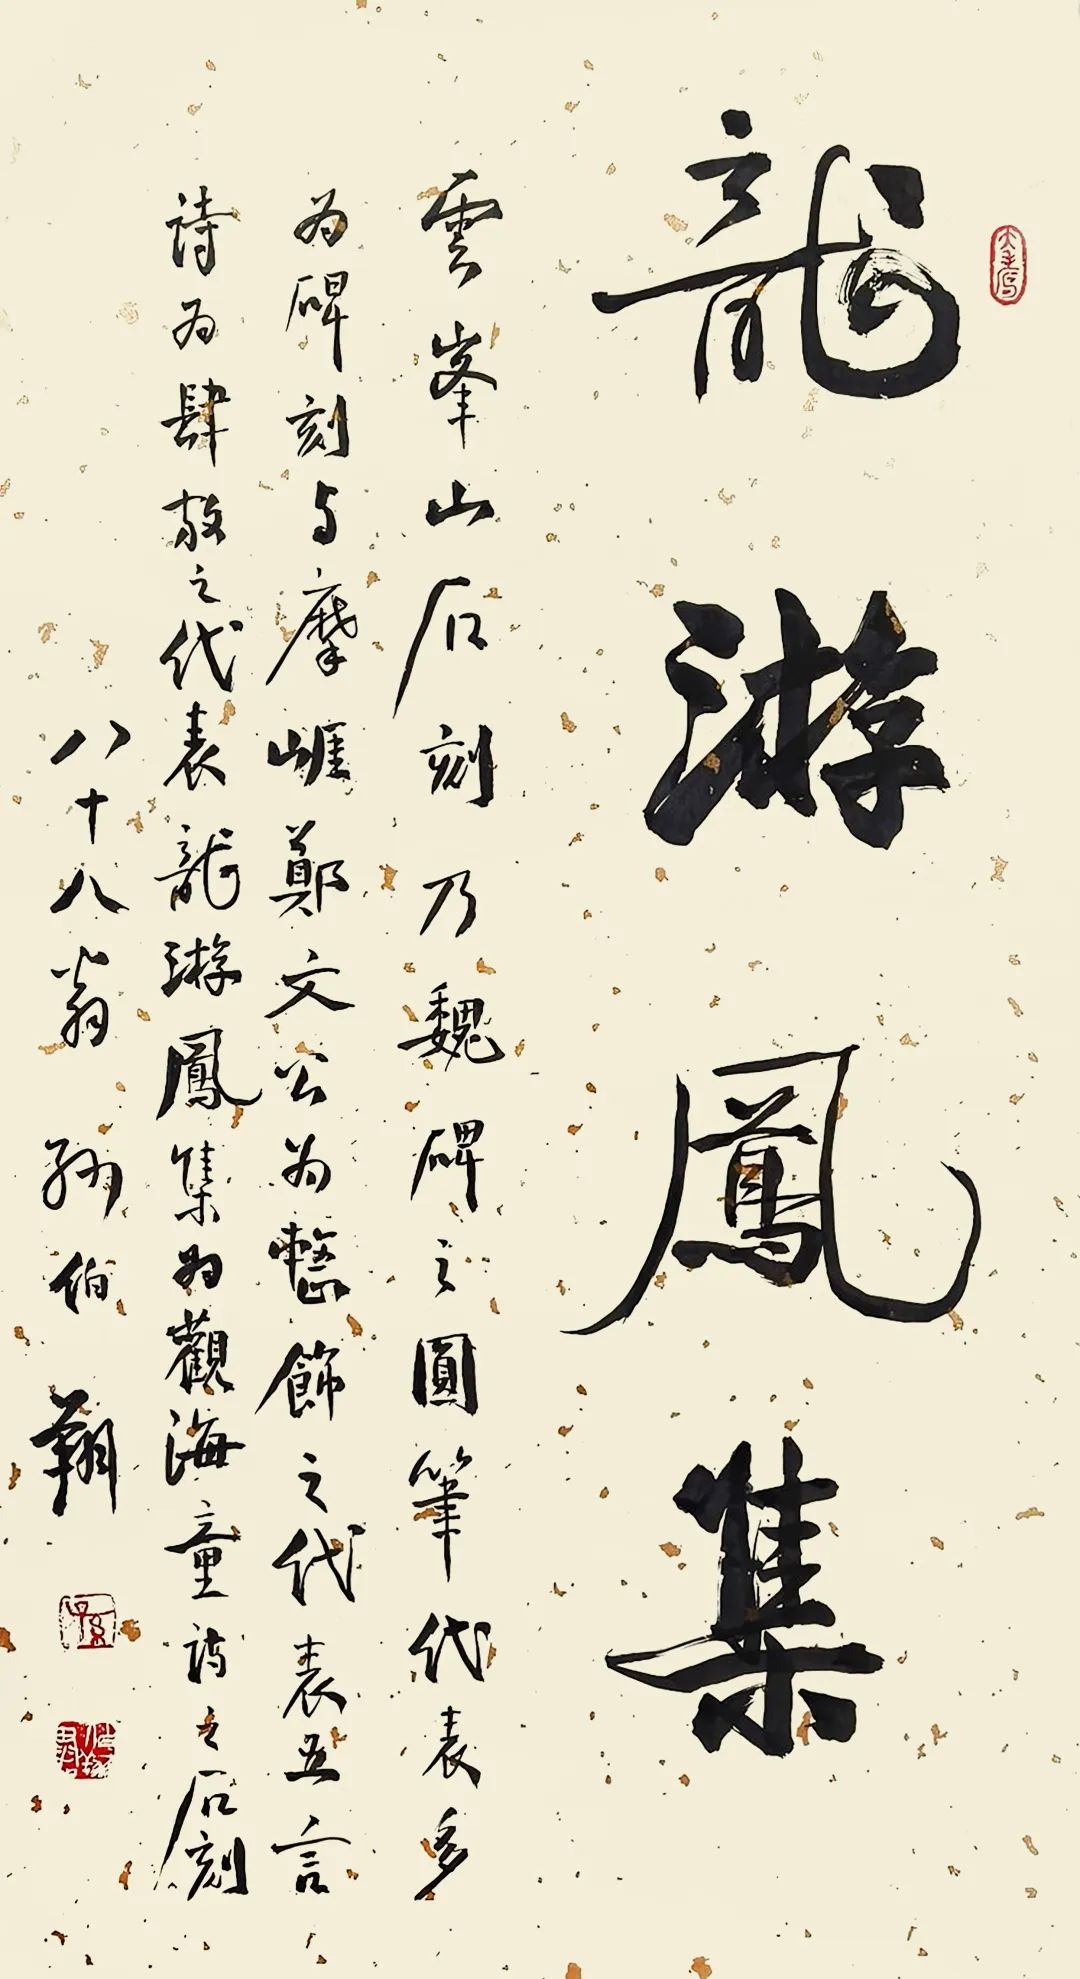 龍游鳳集
雲峯山石刻乃魏碑之圓筆代表多
为碑刻与摩崕鄭文公为整飾之代表五言
詩为肆放之代表龍游鳳集为觀海童詩之石刻
八十八翁 孙伯翔